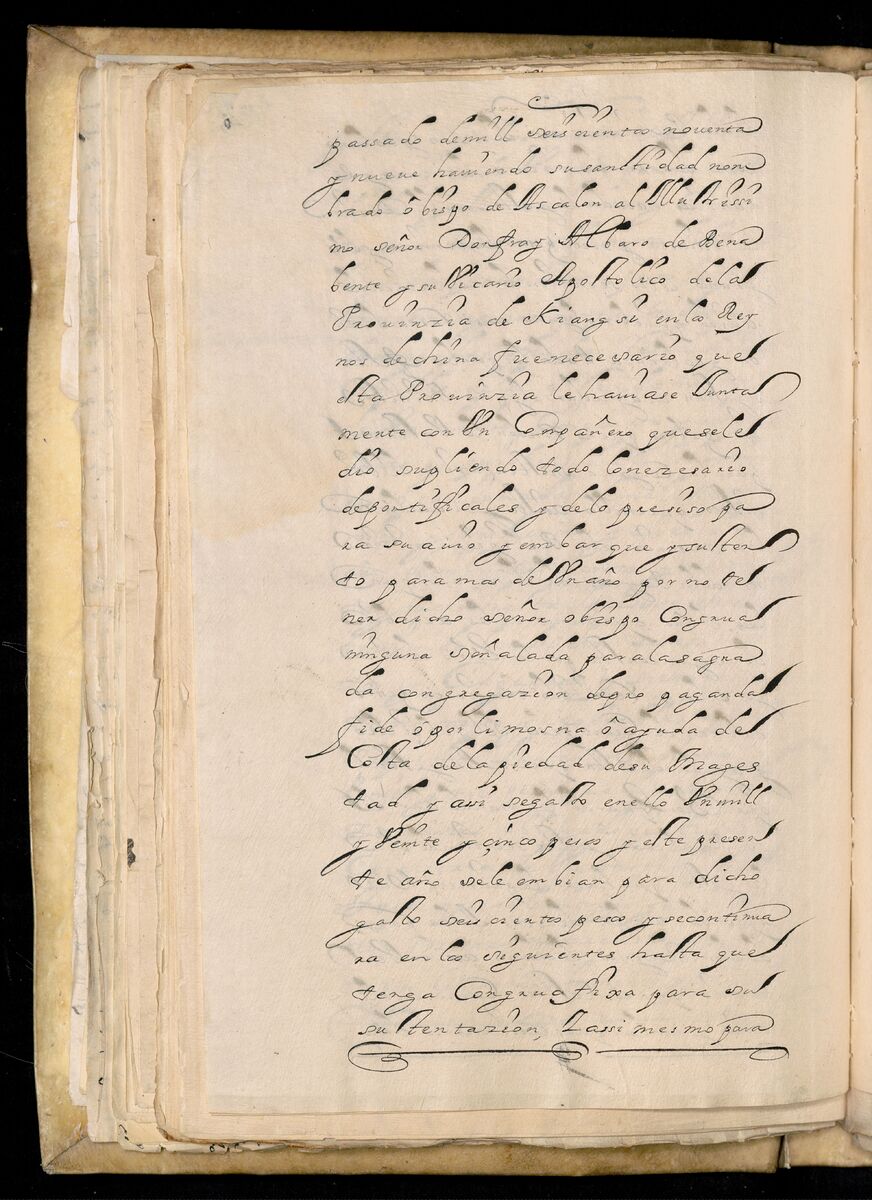 passado de mill seiscientos noventa
y nueve haviendo susanctidad nom
brado ôbispo de Ascalon al Illustrissi
mo señor Don fray Albaro de Bena
bente y su Vicario Apostolico de la
Provinzia de Kiangsi en los Rey
nos de china fue necesario que
esta Provinzia le haviase Junta
mente con Vn Compañero que se le
dio supliendo todo lo nezesario
de pontificales y de lo presiso pa
ra su avio y embarque y susten
to para mas de Vn año por no te
ner dicho señor obispo Congrua
ninguna señalada por la sagra
da congregazion de pro paganda
fide ô por limosna ô ayuda de
Costa de la piedad de su Mages
tad y assi se gasto en ello Vn mill
y Veinte y cinco pesos y este presen
te año se le embian para dicho
gasto seiscientos pesos y se continua
ra en los siguientes hasta que
tenga Congrua fixa para su
sustentazion, Y assi mesmo para